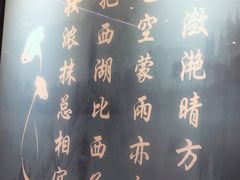 潋滟晴方
色空蒙雨亦
把西湖比西
妆浓抹总相宜